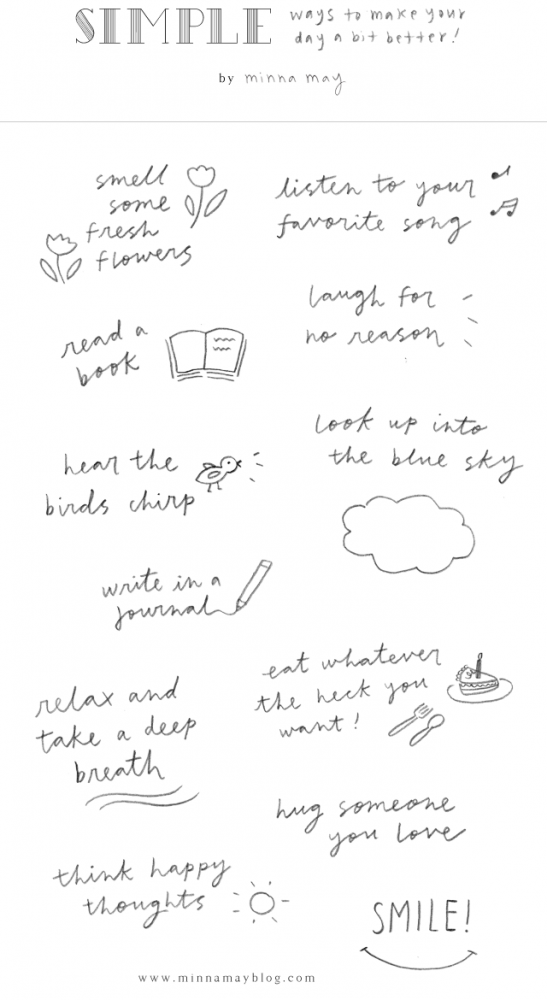 SIMPLE ways to make your
day a bit better!
by minna may
smell
some
fresh
flowers
listen to your
favorite song
laugh for
no reason
read a
book
look up into
the blue sky
hear the
birds chirp
write in a
journal
eat whatever
the heck you
want!
relax and
take a deep
breath
hug someone
you love
think happy
thoughts
SMILE!
www.minnamayblog.com